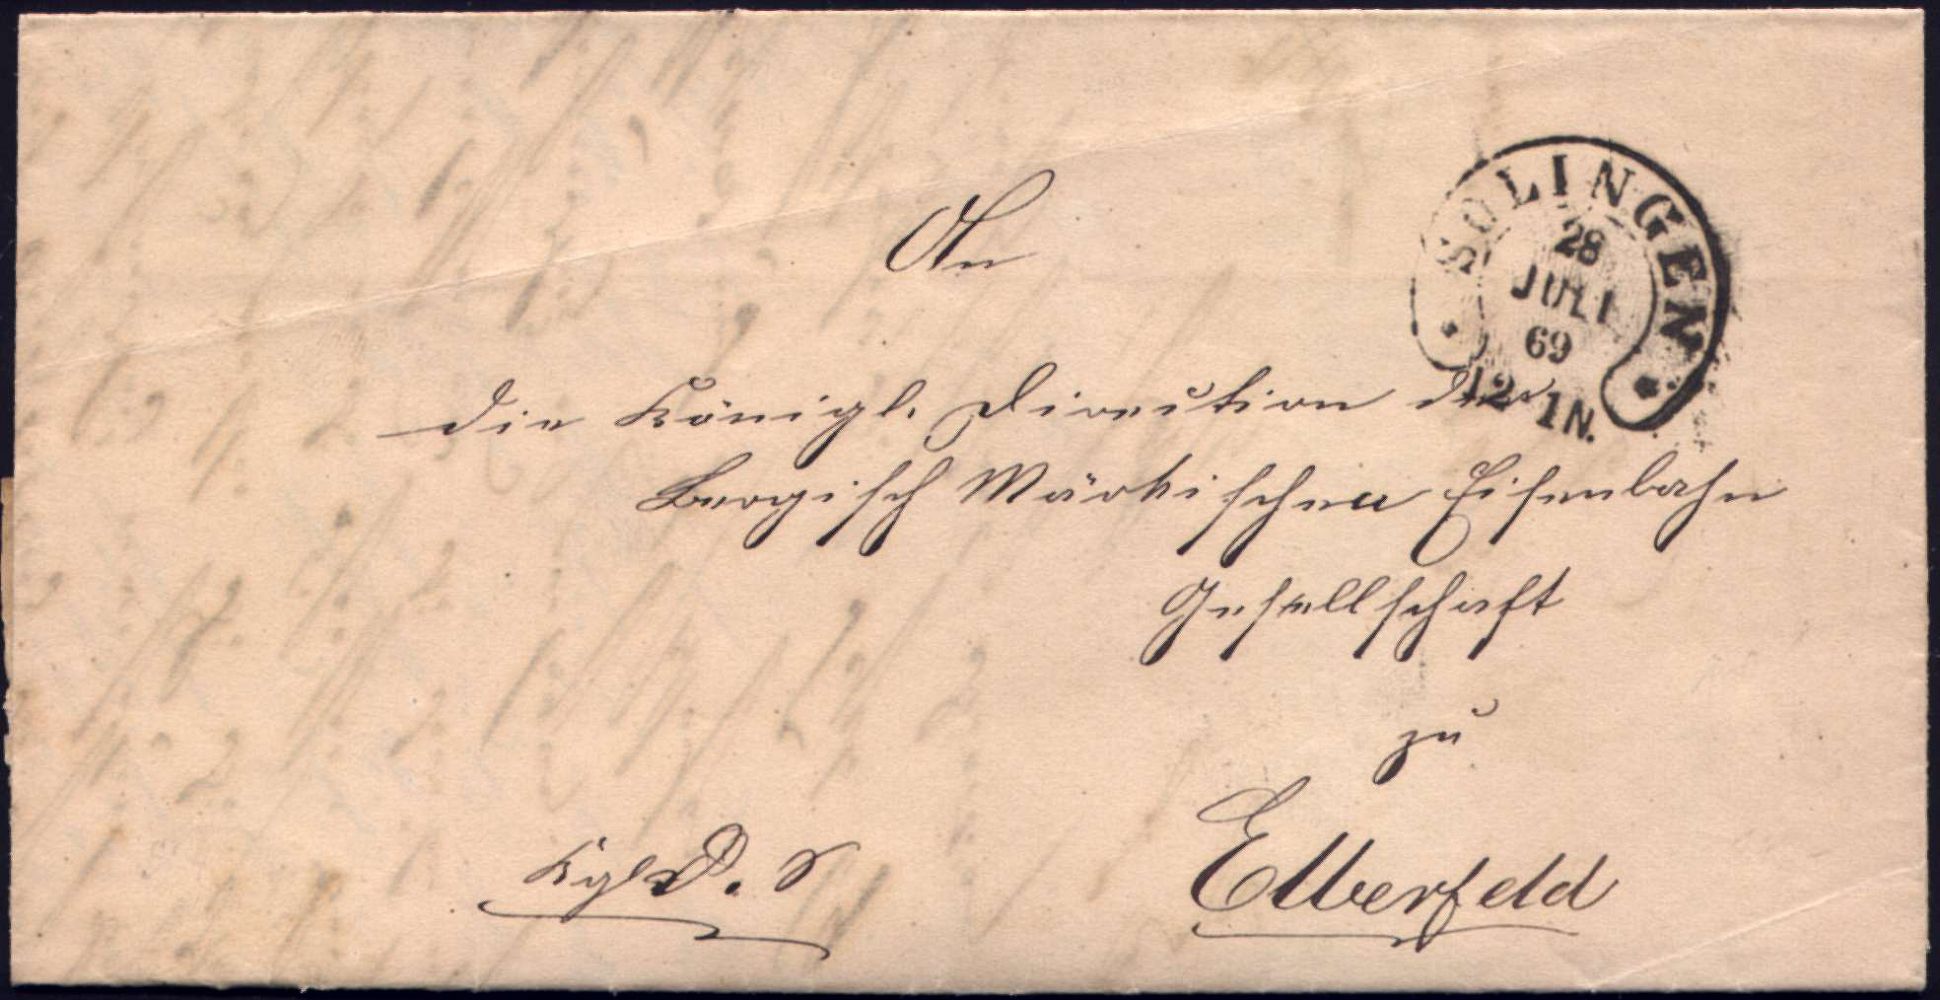 SOLINGEN
28
JULI
69
12-1N.
An
die Königl. Direction der
Bergisch Märkischen Eisenbahn
Gesellschaft
zu
Elberfeld
Kgl. D. S